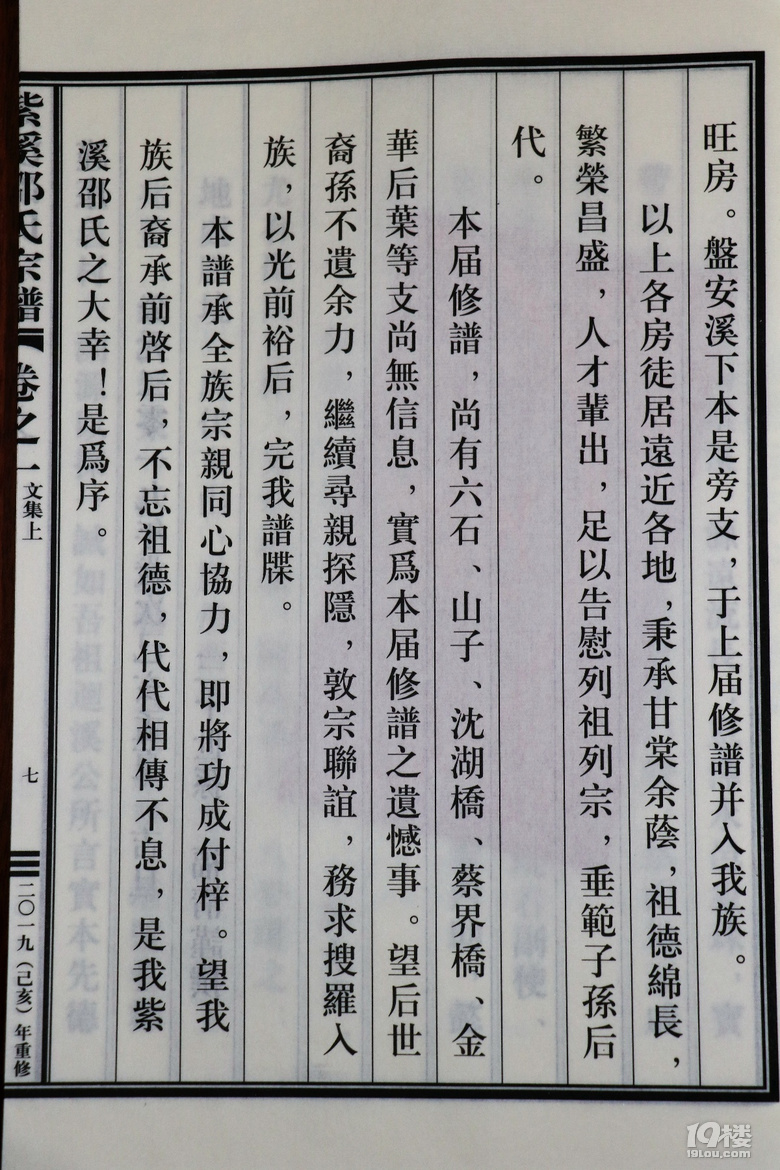 旺房。盤安溪下本是旁支，于上届修譜并入我族。
以上各房徒居遠近各地，秉承甘棠余蔭，祖德綿長，
繁榮昌盛，人才輩出，足以告慰列祖列宗，垂範子孫后
代。
本届修譜，尚有六石、山子、沈湖橋、蔡界橋、金
華后葉等支尚無信息，實爲本届修譜之遺憾事。望后世
裔孫不遺余力，繼續尋親探隱，敦宗聯誼，務求搜羅入
族，以光前裕后，完我譜牒。
本譜承全族宗親同心協力，即將功成付梓。望我
族后裔承前啓后，不忘祖德，代代相傳不息，是我紫
溪邵氏之大幸！是爲序。
紫溪邵氏宗譜 卷之一 文集上 七 二〇一九（己亥）年重修
19楼
19lou.com